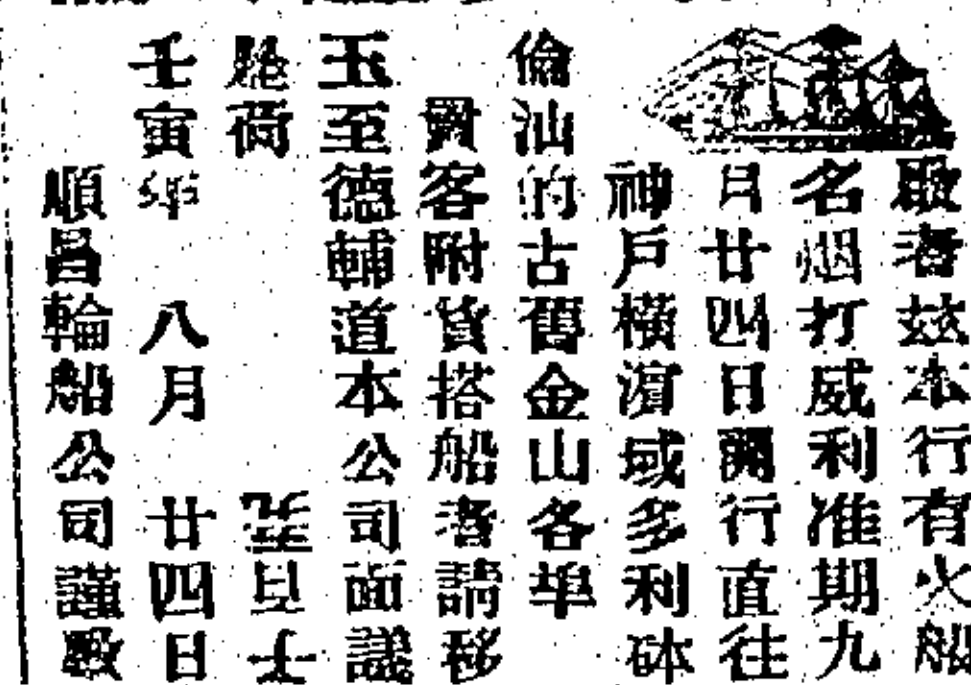 啟者茲本行有火船
名烟打威利准期九
月廿四日開行直往
神戶橫濵域多利砵
倫汕的古舊金山各埠
貴客附貨搭船者請移
玉至德輔道本公司面議
荷
壬寅年 八月 廿四日
順昌輪船公司謹啟